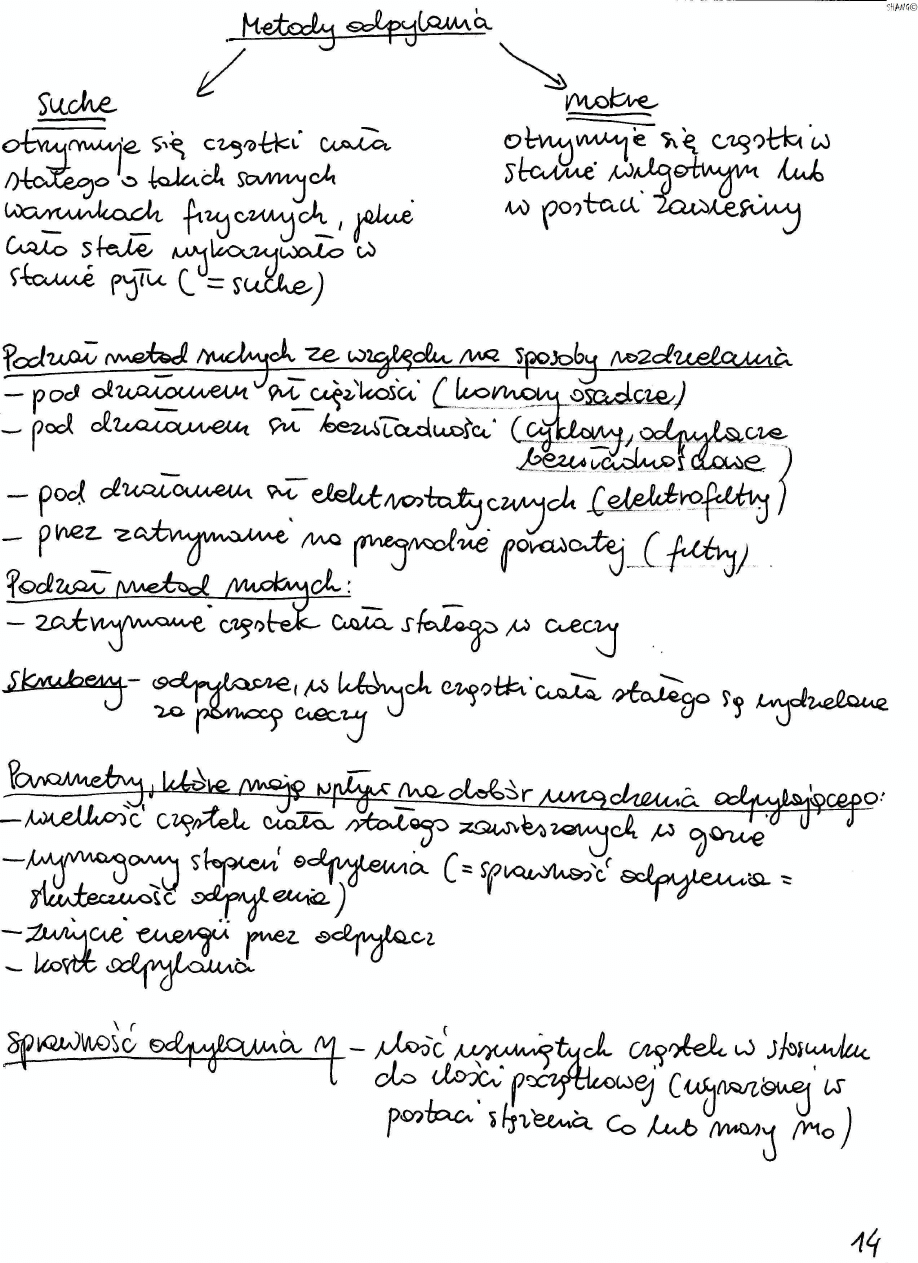 SHANG©
Metody odpylania
suche
otrzymuje się cząstki ciała
stałego o takich samych
warunkach fizycznych, jakie
ciało stałe wykazywało w
stanie pyłu (= suche)
mokre
otrzymuje się cząstki w
stanie wilgotnym lub
w postaci zawiesiny
Podział metod suchych ze względu na sposoby rozdzielania
- pod działaniem sił ciężkości (komory osadcze)
- pod działaniem sił bezwładności (cyklony, odpylacze
bezwładnościowe)
- pod działaniem sił elektrostatycznych (elektrofiltry)
- przez zatrzymanie na przegrodzie porowatej (filtry)
Podział metod mokrych:
- zatrzymanie cząstek ciała stałego w cieczy
Skrubery - odpylacze, w których cząstki ciała stałego są wydzielane
za pomocą cieczy
Parametry, które mają wpływ na dobór urządzenia odpylającego:
- wielkość cząstek ciała stałego zawieszonych w gazie
- wymagany stopień odpylenia (= sprawność odpylenia =
skuteczność odpylenia)
- zużycie energii przez odpylacz
- koszt odpylania
Sprawność odpylania η - ilość usuniętych cząstek w stosunku
do ilości początkowej (wyrażonej w
postaci stężenia c₀ lub masy m₀)
14